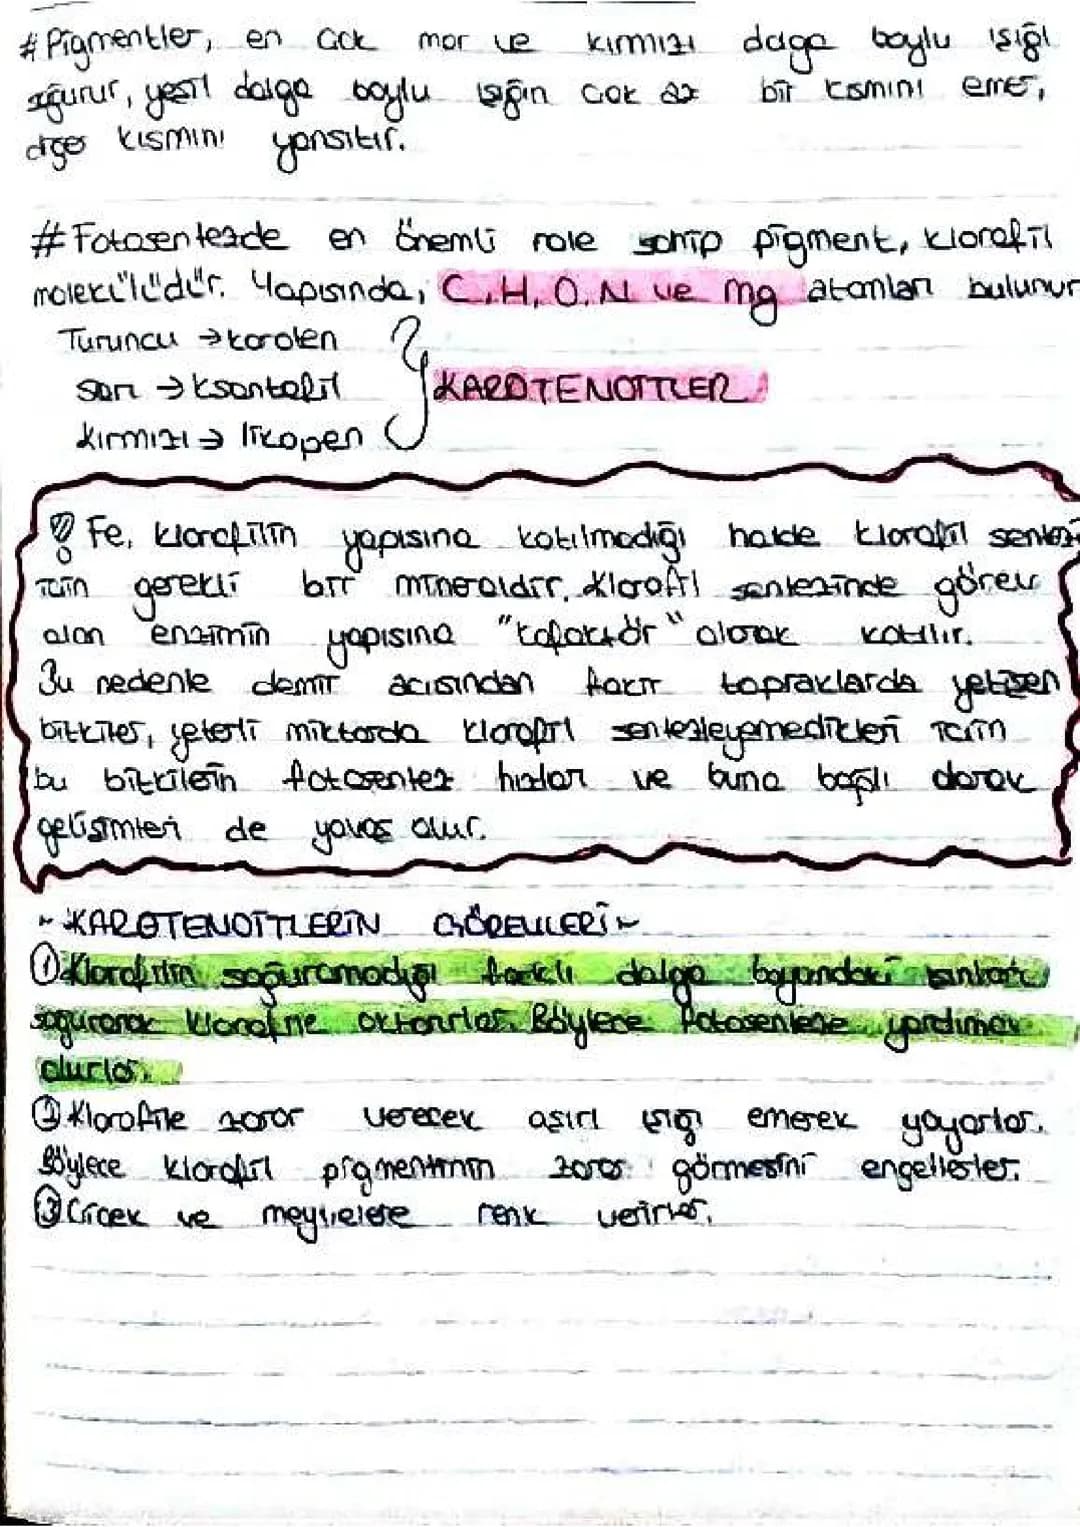 # Pigmentler, en çok mor ve kırmızı dalga boylu ışığı
soğurur, yeşil dalga boylu ışığın çok az bir kısmını emer,
diğer kısmını yansıtır.
# Fotosentezde en önemli role sahip pigment, klorofil
molekülüdür. Yapısında, C, H, O, N ve Mg atomları bulunur
Turuncu → karoten
Sarı → ksantofil
Kırmızı → likopen
KAROTENOİTLER
! Fe, klorofilin yapısına katılmadığı halde klorofil sentezi
için gerekli bir mineraldir. Klorofil sentezinde görev
alan enzimin yapısına "kofaktör" olarak katılır.
Bu nedenle demir açısından fakir topraklarda yetişen
bitkiler, yeterli miktarda klorofil sentezleyemedikleri için
bu bitkilerin fotosentez hızları ve buna bağlı olarak
gelişimleri de yavaş olur.
~ KAROTENOİTLERİN GÖREVLERİ ~
① Klorofilin soğuramadığı farklı dalga boyundaki ışınları
soğurarak klorofile aktarırlar. Böylece fotosenteze yardımcı
olurlar.
② Klorofile zarar verecek aşırı ışığı emerek yayarlar.
Böylece klorofil pigmentinin zarar görmesini engellerler.
③ Çiçek ve meyvelere renk verirler.